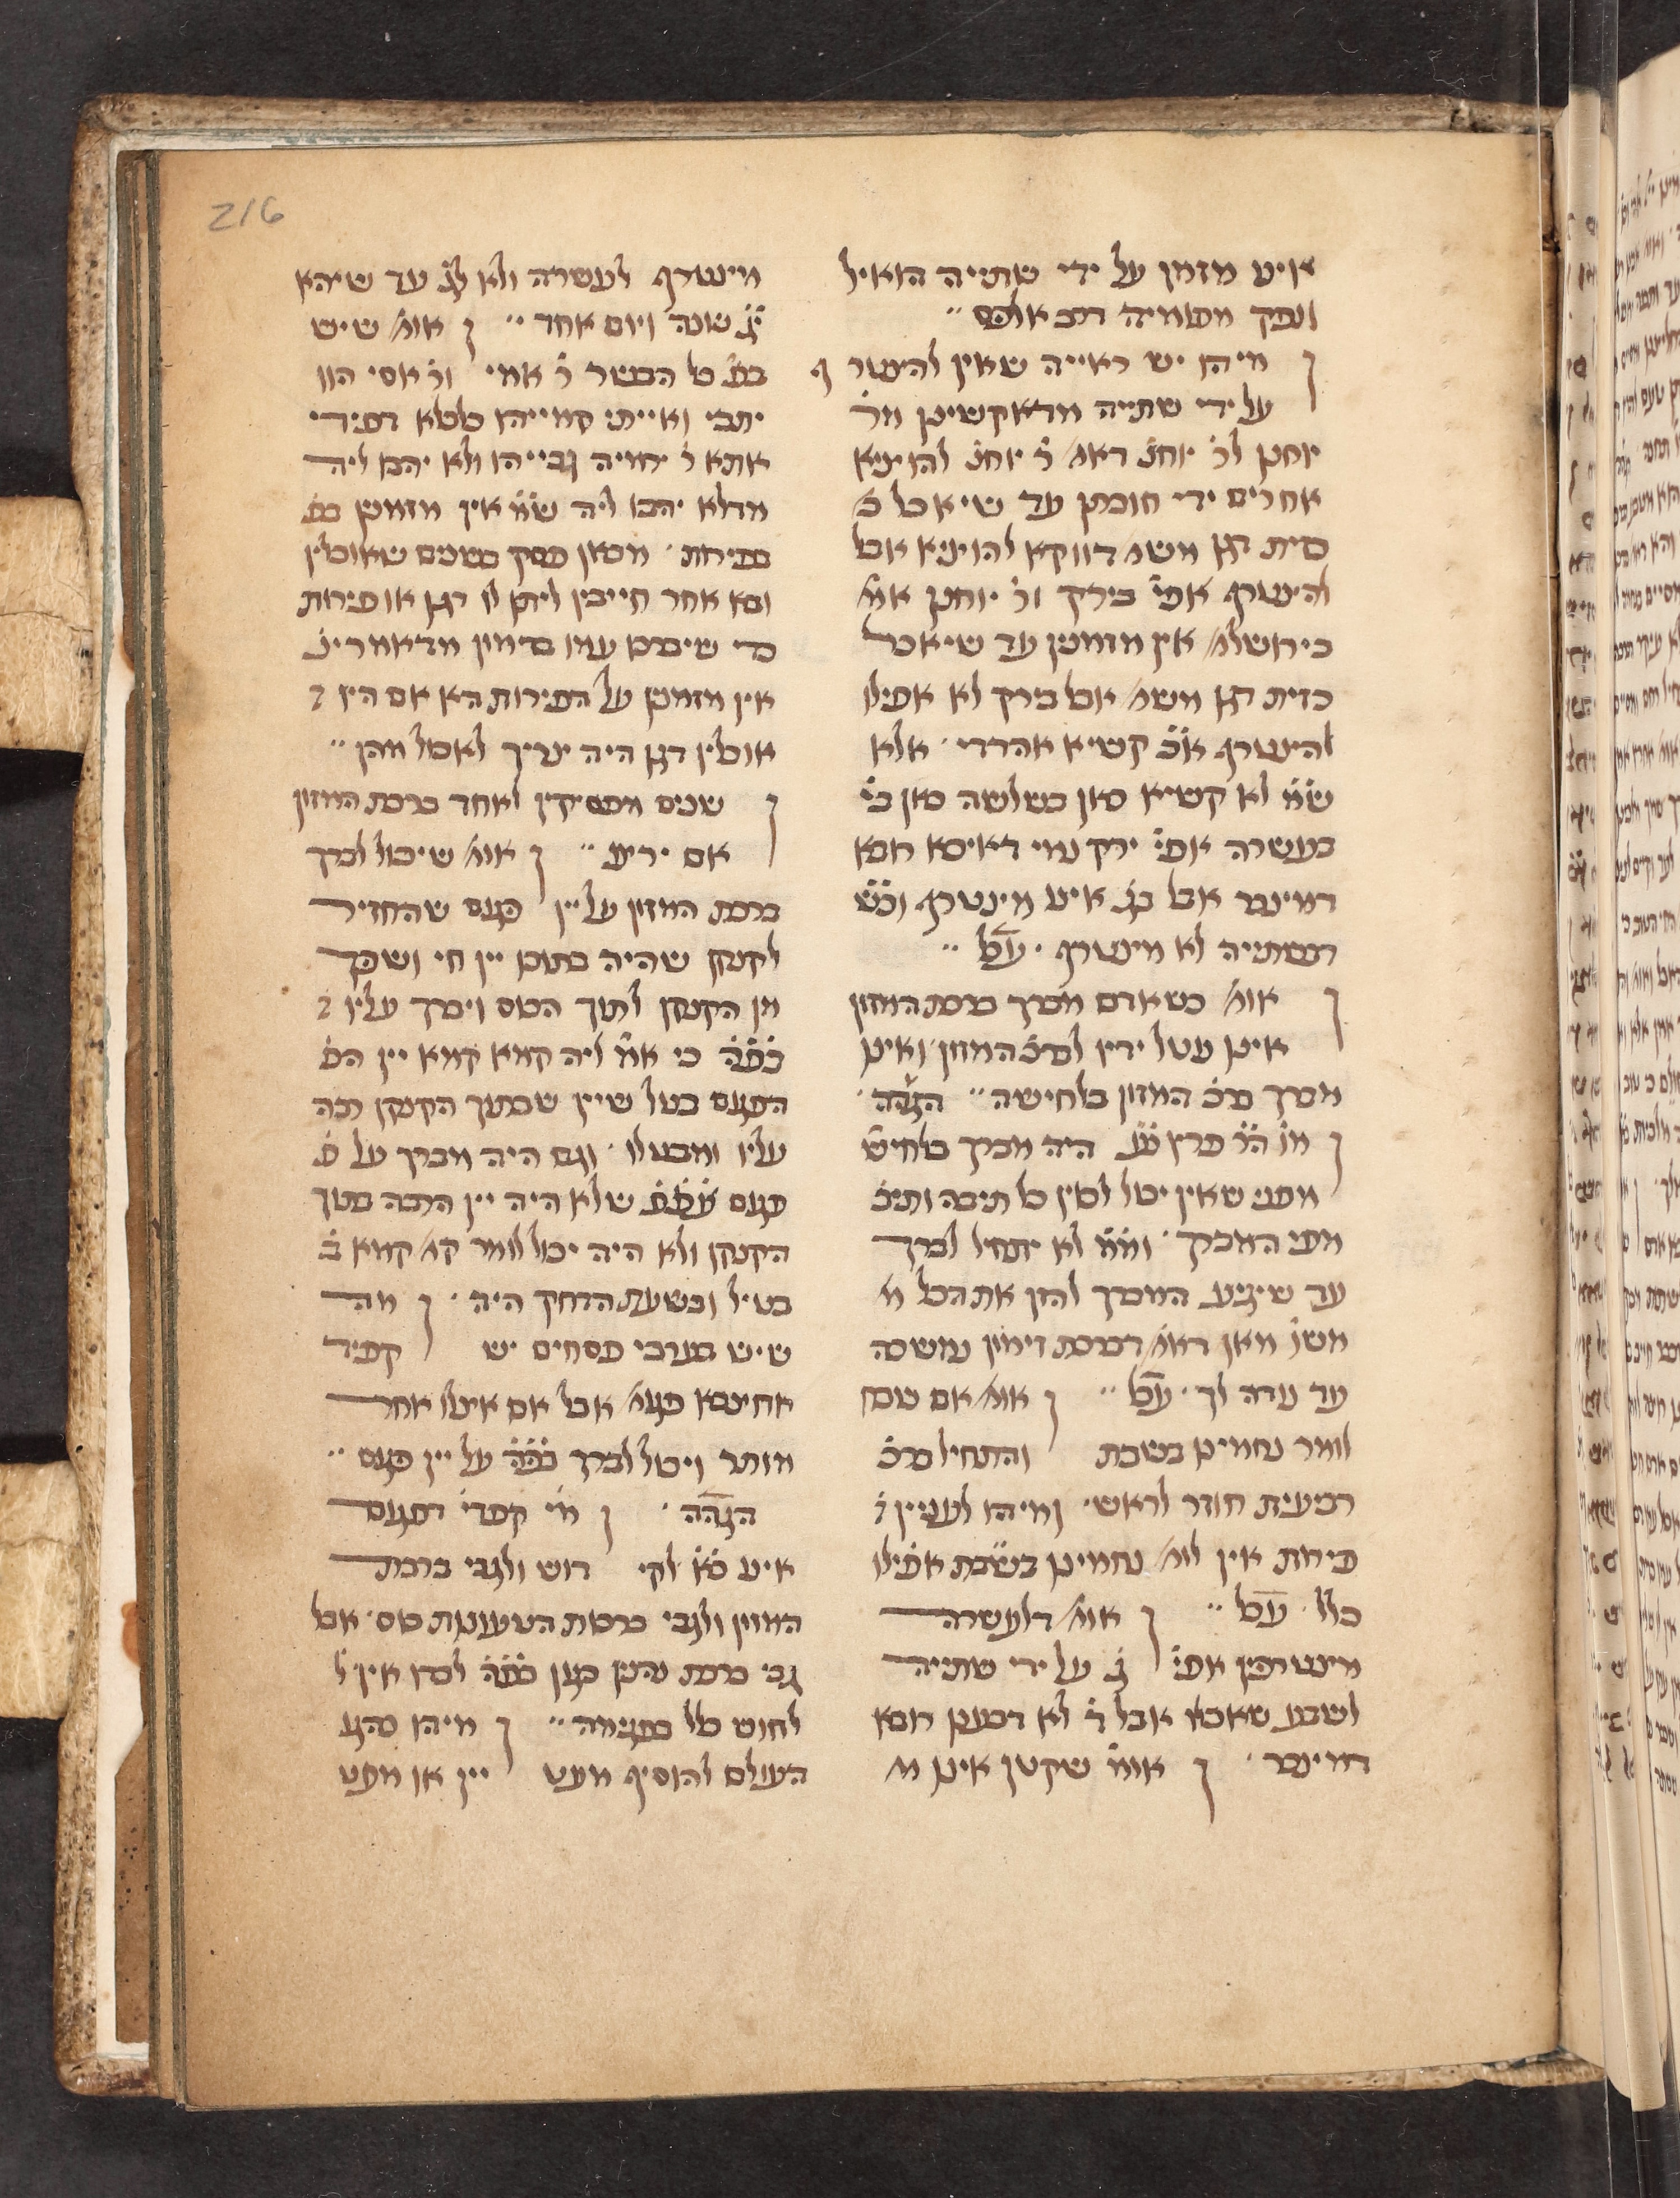 216
אינו מזמן על ידי שתייה הואיל
ונפיק מפומיה דרב אלפס
מיהו יש ראייה שאין להצטרף
על ידי שתייה מדאקשינן מר'
יוחנן לר' יוחנ' דאמ' ר' יוחנ' להוציא
אחרים ידי חובתן עד שיאכל כ'
כזית דגן משמ' דווקא להוציא אבל
להצטרף אפי' בירק ור' יוחנן אמ'
בירושלמ' אין מזמנין עד שיאכל
כזית דגן משמ' אבל בירק לא אפילו
להצטרף א"כ קשיא אהדדי אלא
ש"מ לא קשיא כאן בשלשה כאן בי'
בעשרה אפי' ירק נמי דאיכא רובא
דמינכר אבל בג' אינו מצטרף וכ"ש
דבשתייה לא מצטרף ע"כ
אומ' כשאדם מברך ברכת המזון
אינן נוטל ידיו לברכ' המזון ואינן
מברך ברכ' המזון בלחישה הגהה
מו' ה"ר פרץ נ"ע היה מברך בלחש
מפני שאין יכול לכוין כל תיבה ותיב'
מפי המברך ומ"מ לא יתחיל לברך
עד שיגיע המברך להזן את הכל מ'
משו' מאן דאמ' דברכת זימון נמשכה
עד נודה לך ע"כ אומ' אם שכח
לומר נחמינו בשבת והתחיל ברכ'
רביעית חוזר לראש ומיהו לעניין ז'
פירות אין לומ' נחמינו בשבת אפילו
כלל ע"כ אומ' דלעשרה
מצטרפין אפי' ג' על ידי שתייה
לשבע שאכלו אבל ד' לא דבעינן רובא
דמינכר אומ' שקטן אינו מ'
מצטרף לעשרה ולא לג' עד שיהא
י"ג שנה ויום אחד אומ' שיש
בפ' כל הבשר ר' אמי ור' אסי הוו
יתבי ואייתי קמייהו כלכלא דפירי
אתא ר' ירמיה גבייהו ולא יהבו ליה
מדלא יהבו ליה ש"מ אין מזמנין בפ'
בפירות מכאן פסק בשנים שאוכלין
ובא אחר חייבין ליתן לו דגן או פירות
כדי שיברכו עמו בזימון מדאמרי'
אין מזמנין על הפירות הא אם היו
אוכלין דגן היה צריך לאכול מהן
שנים מפסיקין לאחד ברכת המזון
אם ירצו אומ' שיכול לברך
ברכת המזון על יין פגום שהחזיר
לקנקן שהיה בתוכו יין חי ושפך
מן הקנקן לתוך הכוס ויברך עליו
בפה"ג כי אמ' ליה קמא קמא יין הפ'
הפגום בטל שיין שבתוך הקנקן רבה
עליו ומבטלו וגם היה מברך על פ'
פגום שלא היה יין הרבה בתוך
הקנקן ולא היה יכול לומר קמ' קמא ב'
בטיל ובשעת הדחק היה מה
שיש בערבי פסחים יש קפיד
אחיצבא פגומ' אבל אם אינו אחר
מותר ויכול לברך בפה"ג על יין פגום
הגהה מי' קפדי דפגום
אינו כו' לקי דוש ולגבי ברכת
המזון ולגבי ברכות הטעונות כוס אבל
גבי ברכת נהנין כגון בפה"ג לבדו אין ל'
לחוש כלל בפגימה מיהו נהגו
העולם להוסיף מעט יין או מעט